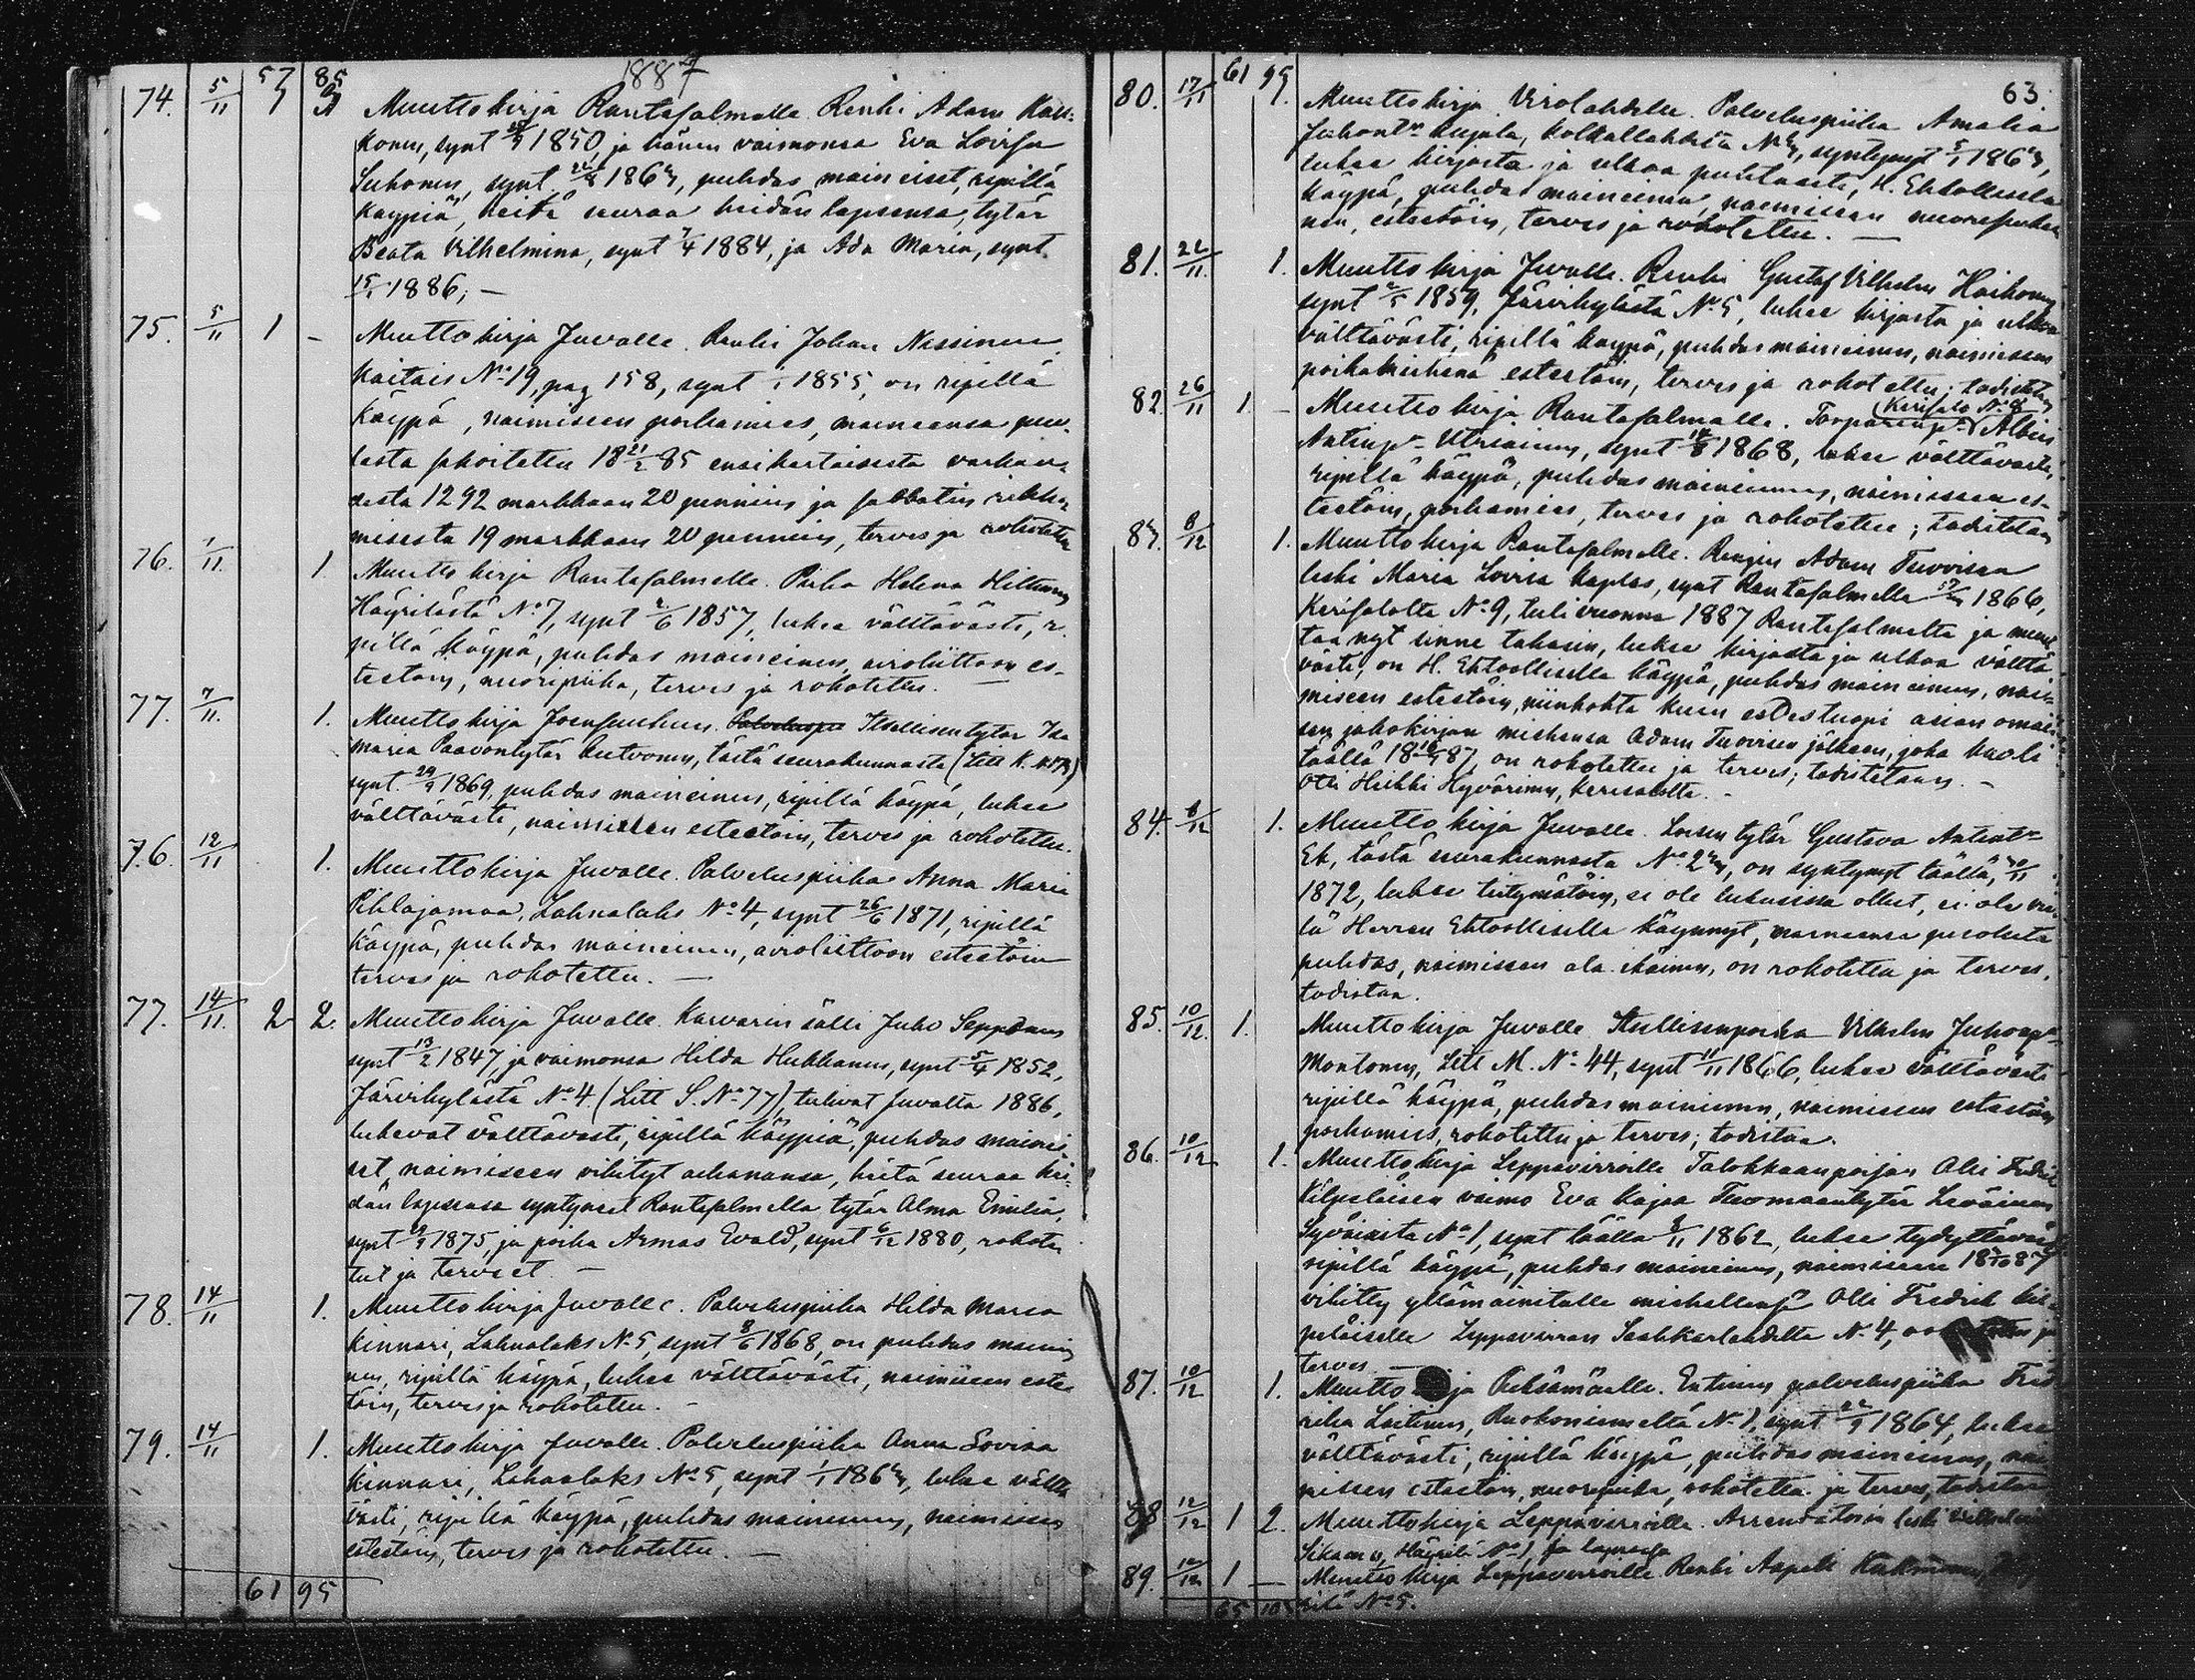 1887
57 85
74. 5/11 1 3 Muuttokirja Rantasalmelle. Renki Adam Kau-
konen, synt 1850, ja hänen vaimonsa Eva Lovisa
Suhonen, synt. 1863, puhdas maineiset, ripillä
käypiä, heitä seuraa heidän lapsensa, tytär
Beata Vilhelmina, synt 7/4 1884, ja Ada Maria, synt.
15/1 1886; —
75. 5/11 1 – Muuttokirja Juvalle. Renki Johan Nissinen
Kaitais No 19, pag 158, synt 1855, on ripillä
käypä, naimiseen poikamies, maineensa puo-
lesta sakoitettu 18 21/2 85 ensikertaisesta varkau-
desta 1292 markkaan 20 penniin ja sabbatin rikko-
misesta 19 markkaan 20 penniin, terve ja rokotettu
76. 7/11. 1. Muuttokirja Rantasalmelle. Piika Helena Hiltunen
Häyrilästä No 7, synt 2/6 1857, lukee välttävästi, ri-
pillä käypä, puhdas maineinen, avioliittoon es-
teetöin, nuoripiika, terve ja rokotettu. —
77. 7/11. 1. Muuttokirja Joensuuhun. Palveluspii Itsellisentytär Ida
Maria Paavontytär Kutvonen, tästä seurakunnasta (Litt K.
synt. 29/9 1869, puhdas maineinen, ripillä käypä, lukee
välttävästi, naimiseen esteetöin, terve ja rokotettu.
76. 12/11 1. Muuttokirja Juvalle. Palveluspiika Anna Maria
Pihlajamaa, Lahnalaks No 4, synt 26/6 1871, ripillä
käypä, puhdas maineinen, avioliittoon esteetöin
terve ja rokotettu. —
77. 14/11. 2 2. Muuttokirja Juvalle. Karvarin sälli Juho Seppänen
synt 13/2 1847, ja vaimonsa Hilda Hukkanen, synt 5/4 1852,
Järvikylästä No 4. (Litt S. No 77), tulivat Juvalta 1886,
lukevat välttävästi, ripillä käypiä, puhdas mainei-
set, naimiseen vihityt aikanansa, heitä seuraa hei-
dän lapsensa syntyneet Rantasalmella tytär Alma Emilia,
synt 1875, ja poika Armas Evald, synt 6/12 1880, rokote-
tut ja terveet. —
78. 14/11 1. Muuttokirja Juvalle. Palveluspiika Hilda Maria
Kinnari, Lahnalaks No 5, synt 8/6 1868, on puhdas mainei-
nen, ripillä käypä, lukee välttävästi, naimiseen estee-
töin, terve ja rokotettu. –
79. 14/11 1. Muuttokirja Juvalle. Palveluspiika Anna Lovisa
Kinnari, Lahnalaks No 5, synt 1/1 1863, lukee vältt-
västi, ripillä käypä, puhdas maineinen, naimiseen
esteetöin, terve ja rokotettu. —
61 95
63.
61 95
80. 17/11 1. Muuttokirja Virolahdelle. Palveluspiika Amalia
Juhont:r Kujala, Kolkallahdesta No 3, syntynyt 5/1 1863,
lukee kirjasta ja ulkoa puhtaasti, H. Ehtoollisella
käypä, puhdas maineinen, naimiseen nuorepiika-
na, esteetöin, terve ja rokotettu. —
81. 22/11. 1. Muuttokirja Juvalle. Renki Gustaf Vilhelm Haikonen
synt 1859, Järvikylästä No 5, lukee kirjasta ja ulkoa
välttävästi, ripillä käypä, puhdas maineinen, naimiseen
poikamiehenä esteetöin, terve ja rokotettu; todistetaan
82. 26/11 1. – Muuttokirja Rantasalmelle. Torparinp. (Kerisalo No 8) Albin
Antinp. Utriainen, synt 1868, lukee välttävästi,
ripillä käypä, puhdas maineinen, naimiseen es-
teetöin, poikamies, terve ja rokotettu; todistetaan
83. 8/12 1. Muuttokirja Rantasalmelle. Rengin Adam Tuovisen
leski Maria Lovisa Kaplas, synt Rantasalmella 1866,
Kerisalolta No 9, tuli vuonna 1887 Rantasalmelta ja muut-
taa nyt sinne takasin, lukee kirjasta ja ulkoa välttä-
västi, on H. Ehtoollisella käypä, puhdas maineinen, nai-
miseen esteetöin, niinkohta kuin esiestuopi asian omai-
sen jakokirjan miehensä Adam Tuovisen jälkeen, joka kuoli
täällä 87, on rokotettu ja terve; todistetaan. –
Otti Heikki Hyvärinen, Kerisalolta. –
84. 8/12 1. Muuttokirja Juvalle. Loisen tytär Gustava Antint:r
Ek, tästä seurakunnasta No 23, on syntynyt täällä, 1872,
lukee tietymätöin, ei ole lukusissa ollut, ei ole vie-
lä Herran Ehtoollisella käynynyt, maineensa puolesta
puhdas, naimiseen ala-ikäinen, on rokotettu ja terve,
todistaa.
85. 10/12. 1. Muuttokirja Juvalle. Itsellisenpoika Vilhelm Juhonp.
Montonen, Litt M. No 44, synt 11/11 1866, lukee välttävästi
ripillä käypä, puhdas maineinen, naimiseen esteetöin
poikamies, rokotettu ja terve; todistaa.
86. 10/12 1. Muuttokirja Leppävirroille Talokkaanpojan Olli Fredrik
Kilpeläisen vaimo Eva Kajsa Tuomaantytär Leväinen
Syväisistä No 1, synt täällä 8/11 1862, lukee tydyttäväst
ripillä käypä, puhdas maineinen, naimiseen 87
vihitty ylämainitulle miehellensä Olli Fredrik Kil-
peläiselle Leppävirran Saahkarlahdelta No 4, ja
terve. —
87. 10/12 1. Muutto ja Pieksämäelle. Entinen palveluspiika Fred-
rika Laitinen, Ruokoniemeltä No 1, synt 22/9 1864, lukee
välttävästi, ripillä käypä, puhdas maineinen, nai-
miseen esteetöin, nuoripiika, rokotettu ja terve, todistaa
88 12/12 1 2. Muuttokirja Leppävirroille. Arrendatorin leski
Sikanen, Häyrilä No 1, ja lapsensa
89. 12/12 1 — Muuttokirja Leppävirroille. Renki Aapeli
rilä No 5.
65 105